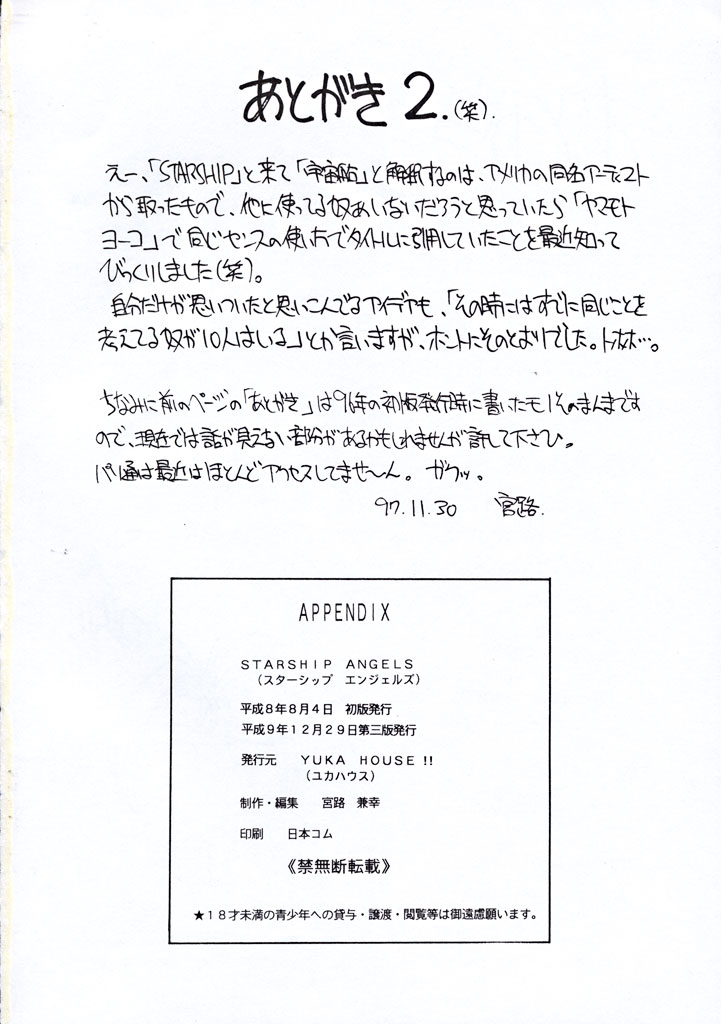 あとがき 2.(笑).
えー、「STARSHIP」と来て「宇宙船」と解釈するのは、アメリカの同名アーティスト
から取ったもので、他に使ってる奴あいないだろうと思っていたら「ヤマモト
ヨーコ」で同じセンスの使い方でタイトルに引用していたことを最近知って
びっくりしました(笑)。
自分だけが思いついたと思いこんでるアイデアも、「その時にはすでに同じことを
考えてる奴が10人はいる」とか言いますが、ホントにそのとおりでした。トホホ…。
ちなみに前のページの「あとがき」は96年の初版発行時に書いたモノそのまんまです
ので、現在では話が見えない部分があるかもしれませんが許して下さひ。
パソ通は最近はほとんどアクセスしてませ〜ん。 ガクッ。
97.11.30 宮路.
APPENDIX
STARSHIP ANGELS
(スターシップ エンジェルズ)
平成8年8月4日 初版発行
平成9年12月29日第三版発行
発行元 YUKA HOUSE!!
(ユカハウス)
制作・編集 宮路 兼幸
印刷 日本コム
《禁無断転載》
★18才未満の青少年への貸与・譲渡・閲覧等は御遠慮願います。